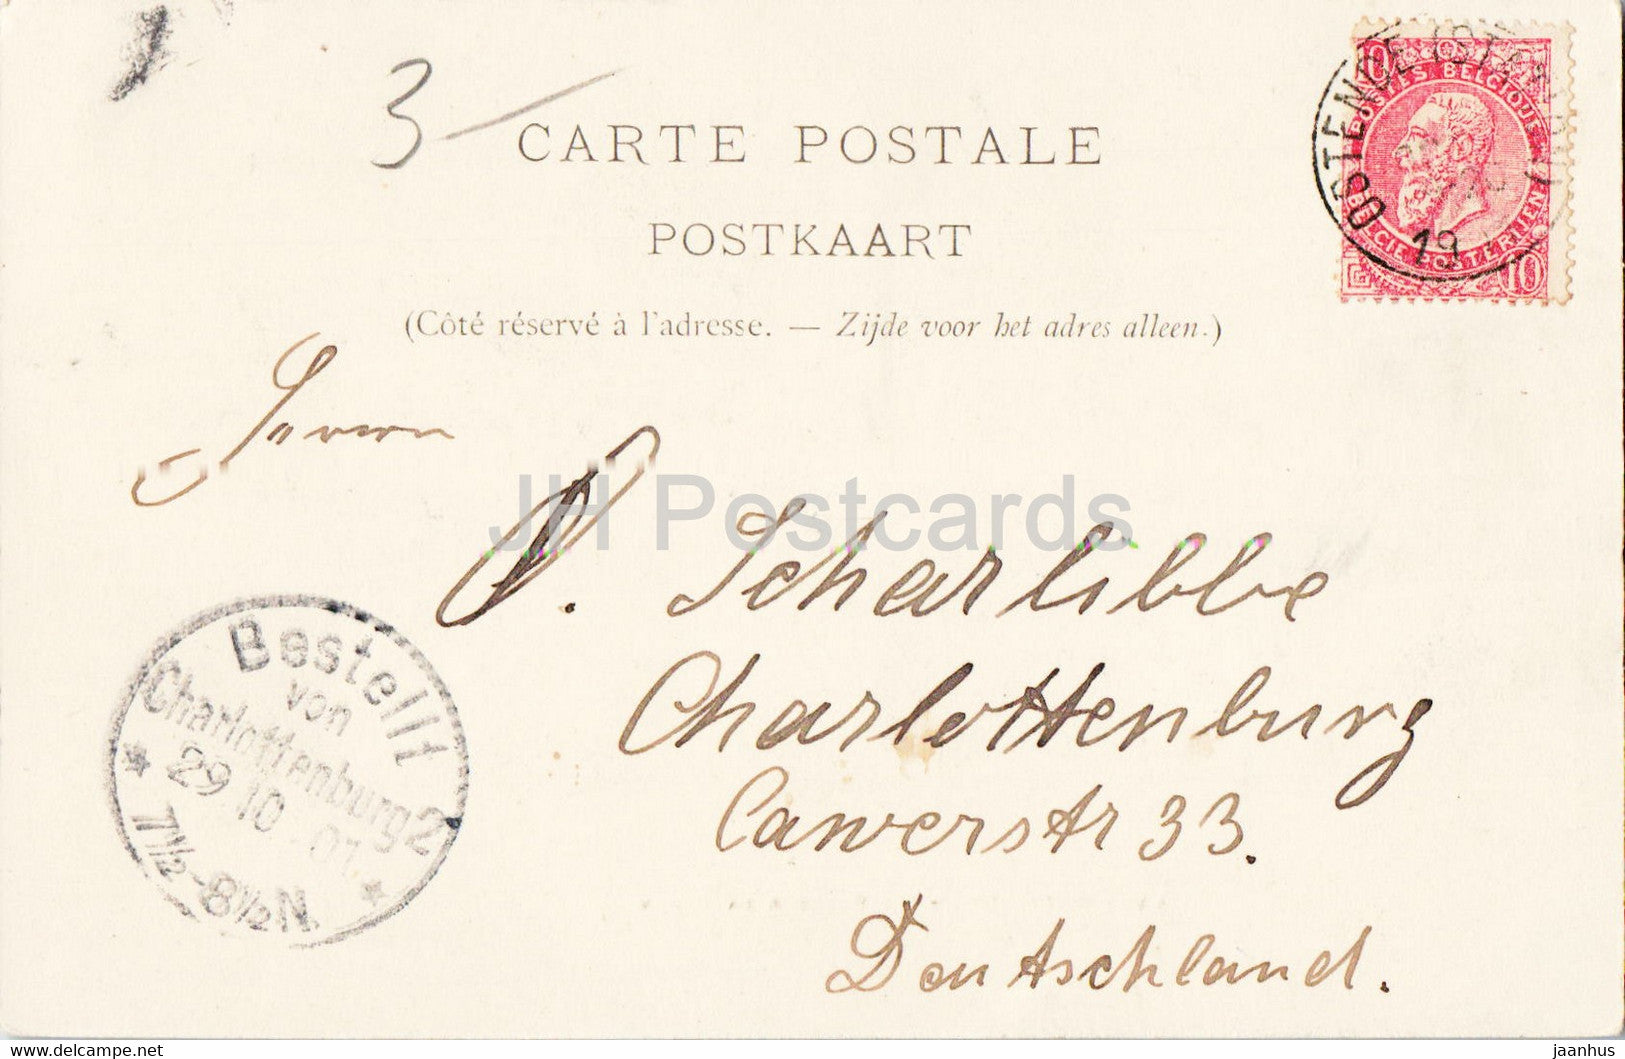 3
CARTE POSTALE
POSTKAART
(Côté réservé à l'adresse. — Zijde voor het adres alleen.)
10 10
POSTES BELGIQUE
BELGIE POSTERIJEN
10
OSTENDE (STAND)
19
Herrn
O. Scharlibbe
Charlottenburg
Cauerstr 33.
Deutschland.
Bestellt
von
Charlottenburg 2
29 10 01
7½-8½ N.
JH Postcards
delcampe.net
jaanhus